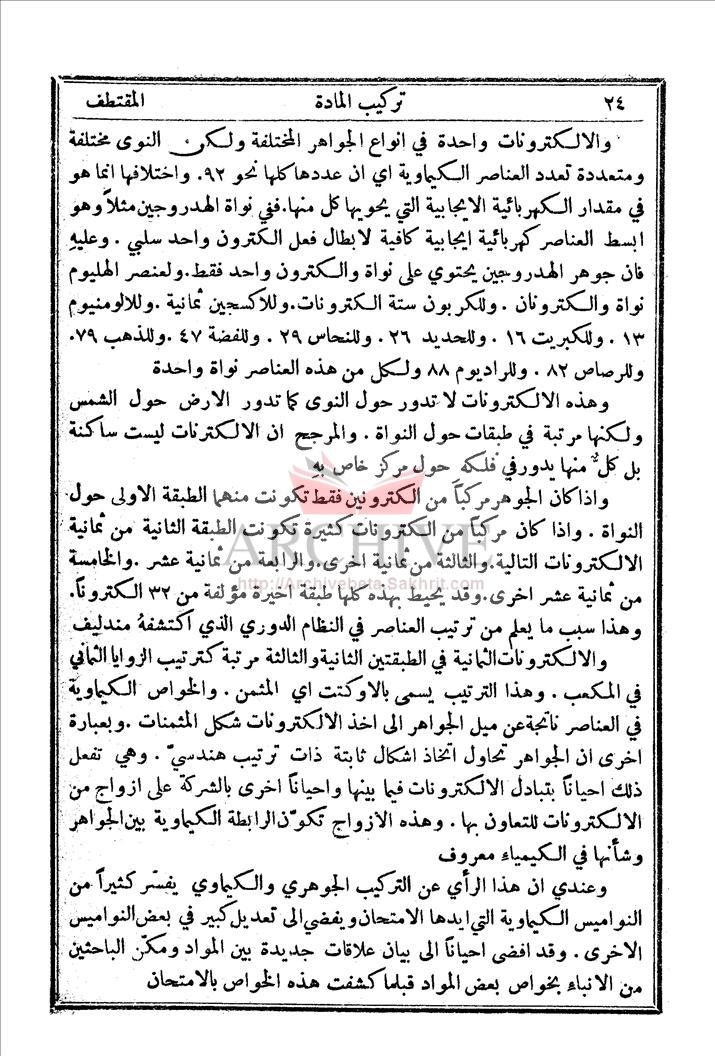 ٢٤ تركيب المادة المقتطف
والالكترونات واحدة في انواع الجواهر المختلفة ولكن النوى مختلفة
ومتعددة تعدد العناصر الكيماوية اي ان عددها كلها نحو ٩٢. واختلافها انما هو
في مقدار الكهربائية الايجابية التي يحويها كل منها. ففي نواة الهدروجين مثلاً وهو
ابسط العناصر كهربائية ايجابية كافية لابطال فعل الكترون واحد سلبي . وعليهِ
فان جوهر الهدروجين يحتوي على نواة والكترون واحد فقط. ولعنصر الهليوم
نواة والكترونان . وللكربون ستة الكترونات. وللاكسجين ثمانية . وللالومنيوم
١٣ . وللكبريت ١٦ . وللحديد ٢٦ . وللنحاس ٢٩ . وللفضة ٤٧ . وللذهب ٧٩.
وللرصاص ٨٢ . وللراديوم ٨٨ ولكل من هذه العناصر نواة واحدة
وهذه الالكترونات لا تدور حول النوى كما تدور الارض حول الشمس
ولكنها مرتبة في طبقات حول النواة . والمرجح ان الالكترنات ليست ساكنة
بل كلٌّ منها يدور في فلكه حول مركز خاص بهِ
واذا كان الجوهر مركباً من الكترونين فقط تكونت منهما الطبقة الاولى حول
النواة . واذا كان مركباً من الكترونات كثيرة تكونت الطبقة الثانية من ثمانية
الالكترونات التالية. والثالثة من ثمانية اخرى. والرابعة من ثمانية عشر . والخامسة
من ثمانية عشر اخرى. وقد يحيط بهذه كلها طبقة اخيرة مؤلفة من ٣٢ الكتروناً.
وهذا سبب ما يعلم من ترتيب العناصر في النظام الدوري الذي اكتشفهُ مندليف
والالكترونات الثمانية في الطبقتين الثانية والثالثة مرتبة كترتيب الزوايا الثماني
في المكعب . وهذا الترتيب يسمى بالاوكتت اي المثمن . والخواص الكيماوية
في العناصر ناتجة عن ميل الجواهر الى اخذ الالكترونات شكل المثمنات . وبعبارة
اخرى ان الجواهر تحاول اتخاذ اشكال ثابتة ذات ترتيب هندسيّ . وهي تفعل
ذلك احياناً بتبادل الالكترونات فيما بينها واحياناً اخرى بالشركة على ازواج من
الالكترونات للتعاون بها . وهذه الازواج تكوّن الرابطة الكيماوية بين الجواهر
وشأنها في الكيمياء معروف
وعندي ان هذا الرأي عن التركيب الجوهري والكيماوي يفسّر كثيراً من
النواميس الكيماوية التي ايدها الامتحان ويفضي الى تعديل كبير في بعض النواميس
الاخرى . وقد افضى احياناً الى بيان علاقات جديدة بين المواد ومكّن الباحثين
من الانباء بخواص بعض المواد قبلما كشفت هذه الخواص بالامتحان
ARCHIVE
http://Archivebeta.Sakhrit.com